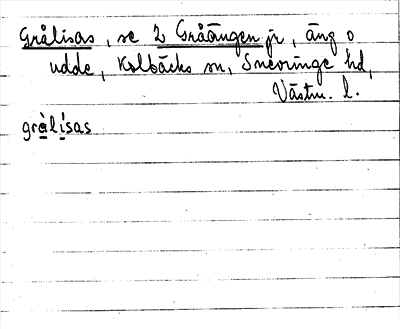 Grålisas, se 2 Gråängen jr, äng o
udde, Kolbäcks sn, Snevringe hd,
Västm. l.
gràlísas